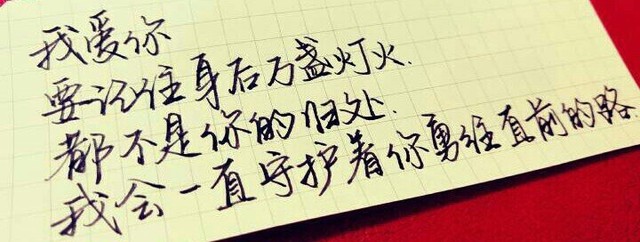 我爱你
要记住身后万盏灯火.
都不是你的归处.
我会一直守护着你勇往直前的路.